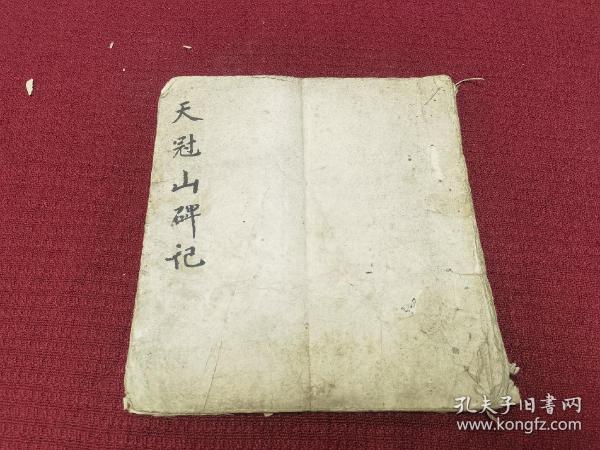 天冠山碑记
孔夫子旧書网
www.kongfz.com